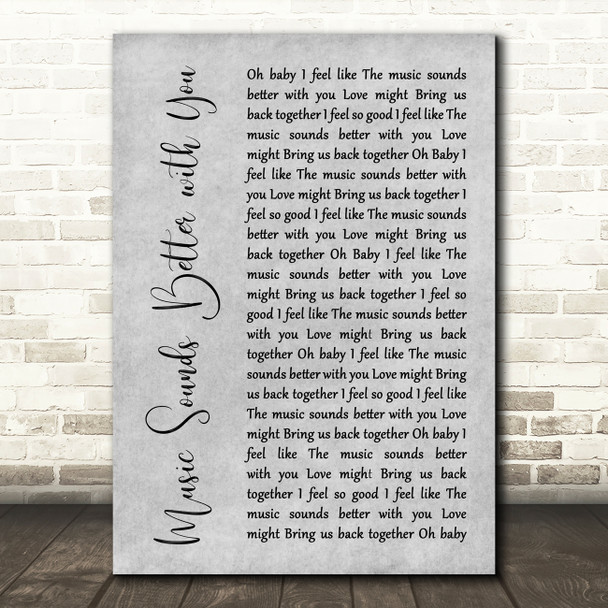 Music Sounds Better with You
Oh baby I feel like The music sounds
better with you Love might Bring us
back together I feel so good I feel like The
music sounds better with you Love
might Bring us back together Oh Baby I
feel like The music sounds better with
you Love might Bring us back together I
feel so good I feel like The music sounds
better with you Love might Bring us
back together Oh Baby I feel like The
music sounds better with you Love
might Bring us back together I feel so
good I feel like The music sounds better
with you Love might Bring us back
together Oh baby I feel like The music
sounds better with you Love might Bring
us back together I feel so good I feel like
The music sounds better with you Love
might Bring us back together Oh baby I
feel like The music sounds better
with you Love might Bring us back
together I feel so good I feel like The
music sounds better with you Love
might Bring us back together Oh baby